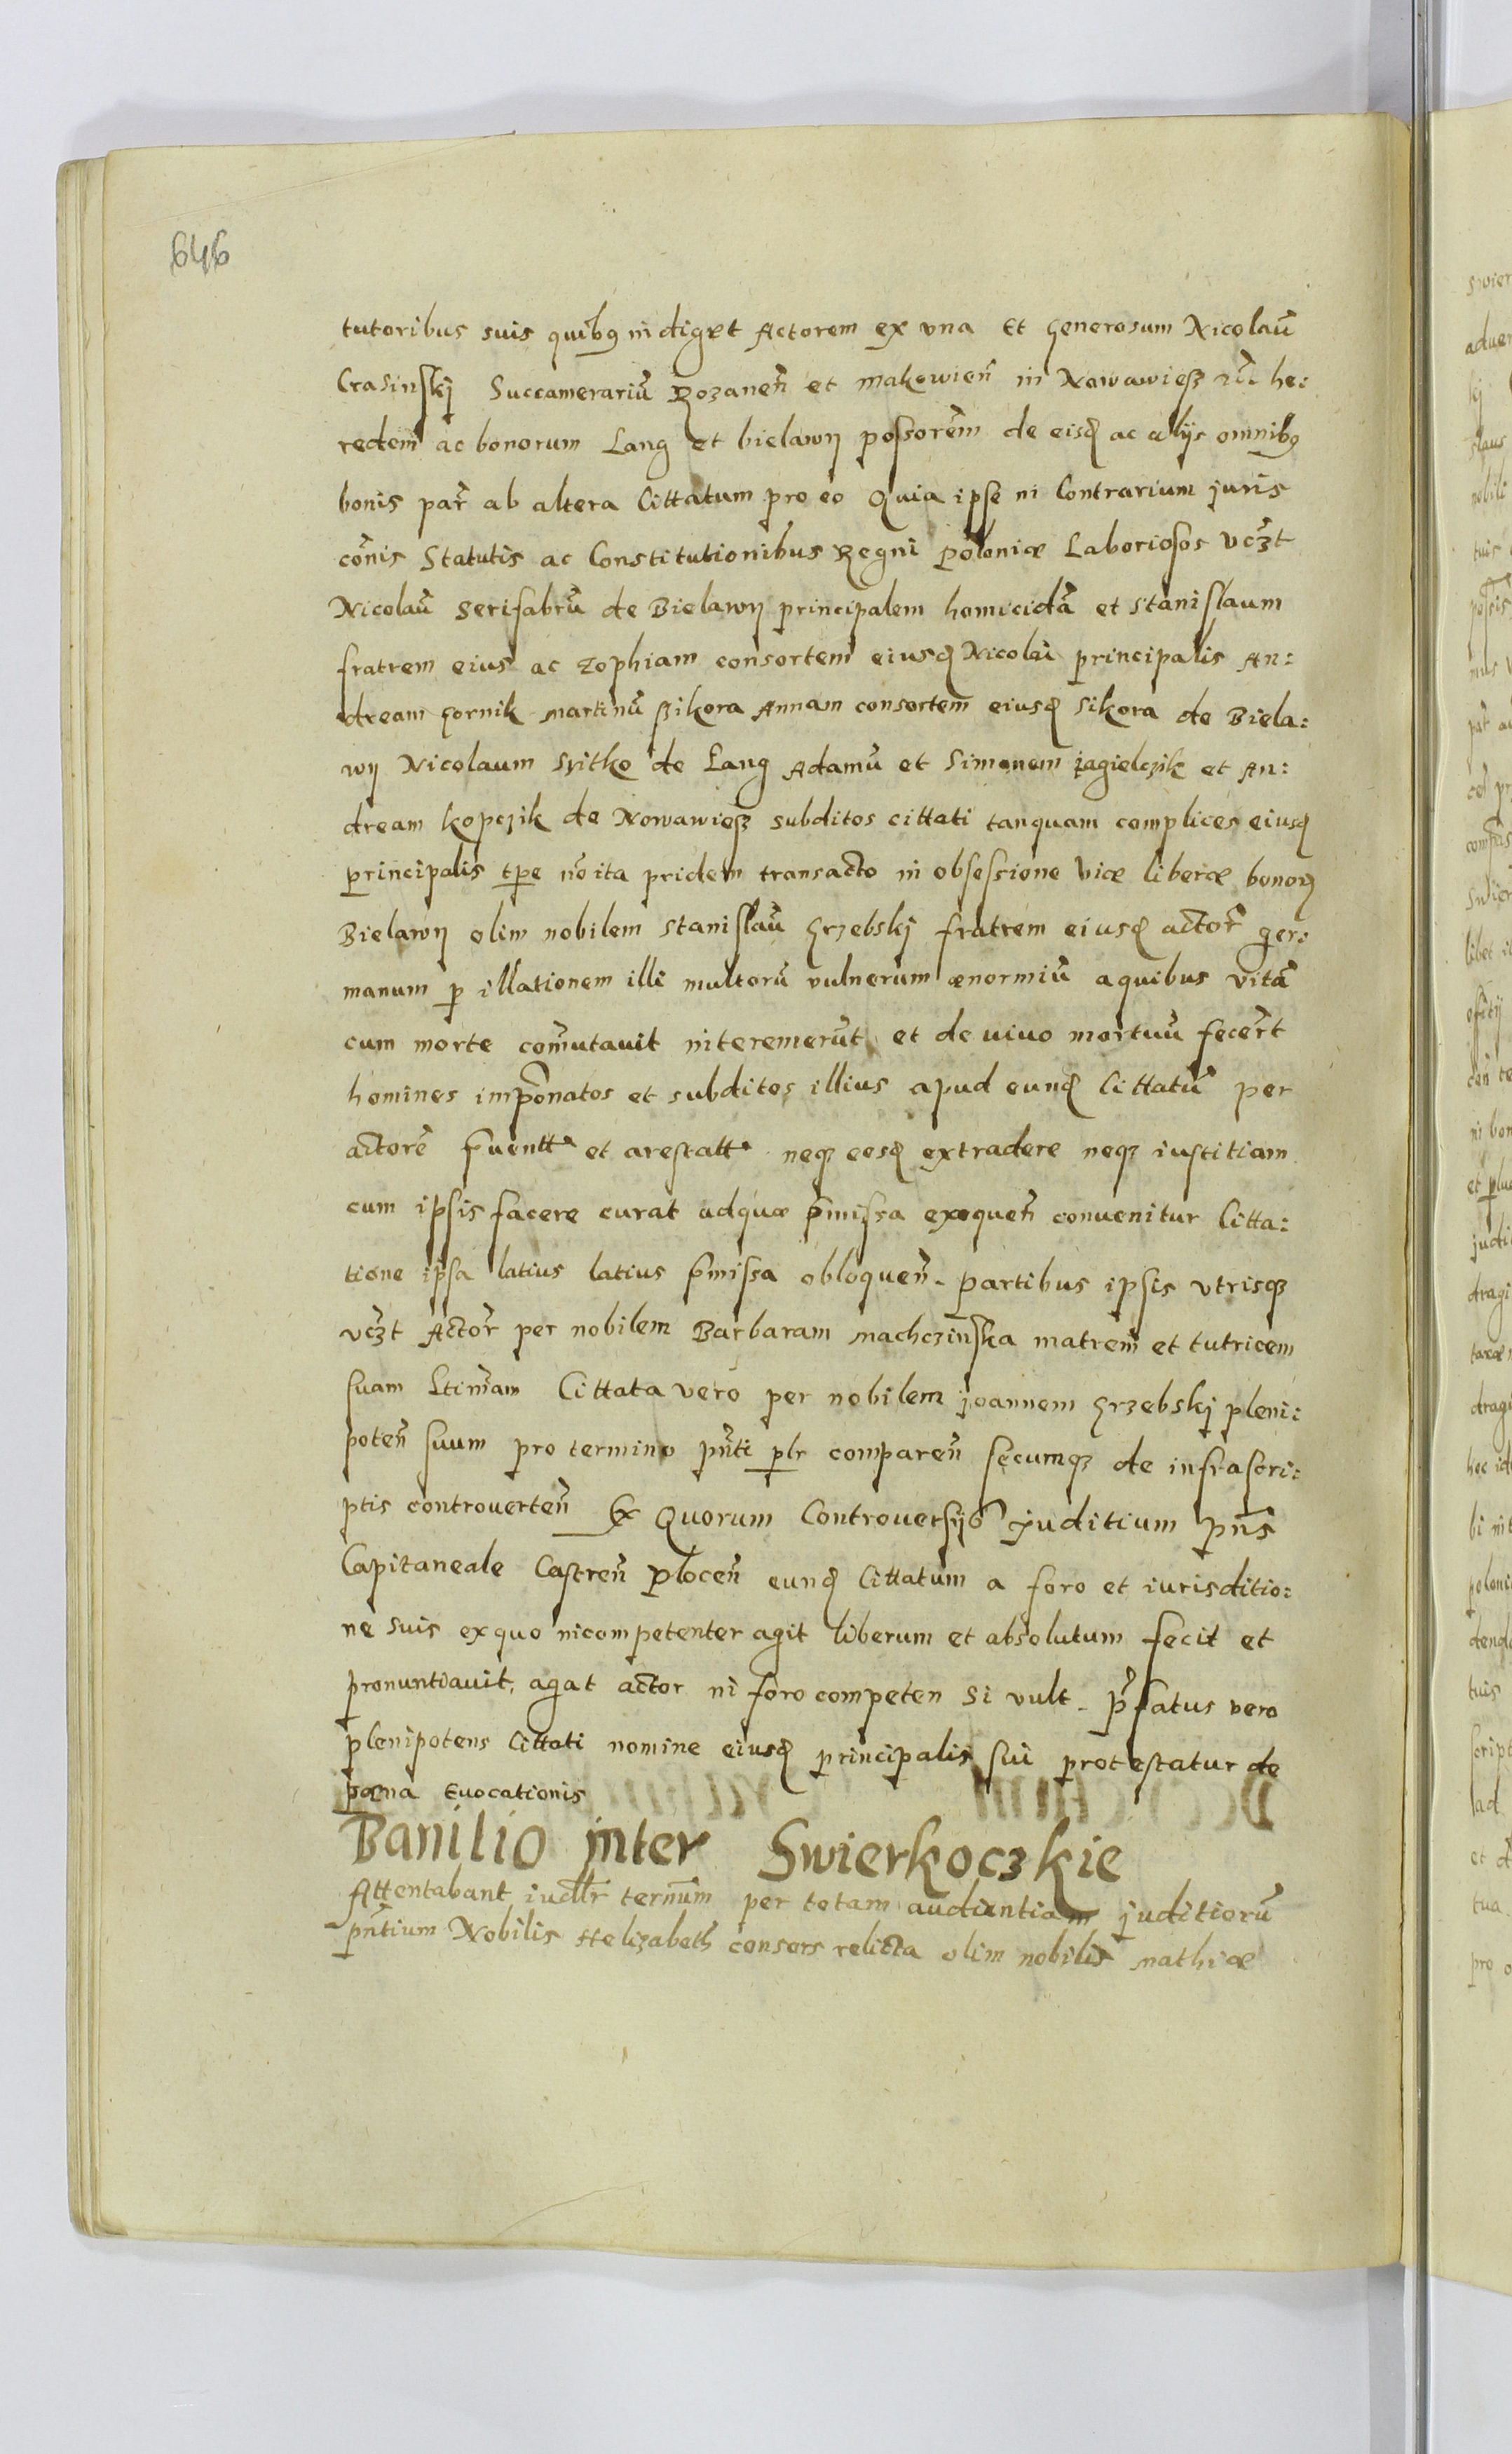 646
tutoribus suis quibꝯ indiget Actorem ex vna Et Generosum Nicolaū
Crasinskj Succamerariū Rozaneñ et makowieñ in Nowawiesz &c̃. he:
redem ac bonorum Lang et bielawy possorem̃ de eisđ ac alijs omnibꝯ
bonis par̃ ab altera Cittatum pro eo Quia ipse in Contrarium juris
com̃is Statutis ac Constitutionibus Regni poloniæ Laboriosos vcz̃t
Nicolaū Serifabrū de Bielawy principalem homicidā et Stanislaum
fratrem eius ac Zophiam consortem eiusđ Nicolai principalis An:
dream Gornik Martinū Szikora Annam consortem eiusđ Sikora de Biela:
wy Nicolaum Syitko de Lang Adamū et Simonem jagielczik et An:
dream kopczik de Nowawiesz subditos cittati tanquam complices eiusđ
principalis tpe nõ ita pridem transacto in obsessione viæ liberæ bonoꝝ
Bielawy olim nobilem Stanislaū Grzebskj fratrem eiusđ actor̃ ger:
manum ꝑ illationem illi multorū vulnerum ænormiū aquibus vitā
cum morte com̃utauit interemerūt et de viuo mortuū fecer̃t
homines imp̃onatos et subditos illius apud eunđ Cittatū per
actorē p̃uentt et arestatt neqꝫ eosđ extradere neqꝫ iustitiam
cum ipsis facere curat adquæ p̃missa exequeñ conuenitur Citta:
tione ipsa latius latius p̃missa obloqueñ. partibus ipsis vtrisqꝫ
vcz̃t Actor̃ per nobilem Barbaram Machczinska matrem et tutricem
suam Ltimam̃ Cittata vero per nobilem joannem Grzebskj pleni:
poteñ suum pro termino pñti plr compareñ secumqꝫ de infrascri:
ptis controuerteñ Ex Quorum Controuersijs Juditium pñs
Capitaneale Castreñ Ploceñ eunđ Cittatum a foro et iurisditio:
ne suis exquo incompetenter agit liberum et absolutum fecit et
pronuntiauit, agat actor in foro competen si vult. p̃fatus vero
plenipotens Cittati nomine eiusđ principalis sui protestatur de
pæna Euocationis
Banilio inter Swierkoczkie
Attentabant iudllr ternum̃ per totam audientiam juditiorū
pñtium Nobilis Helizabeth consors relicta olim nobilis Mathiæ